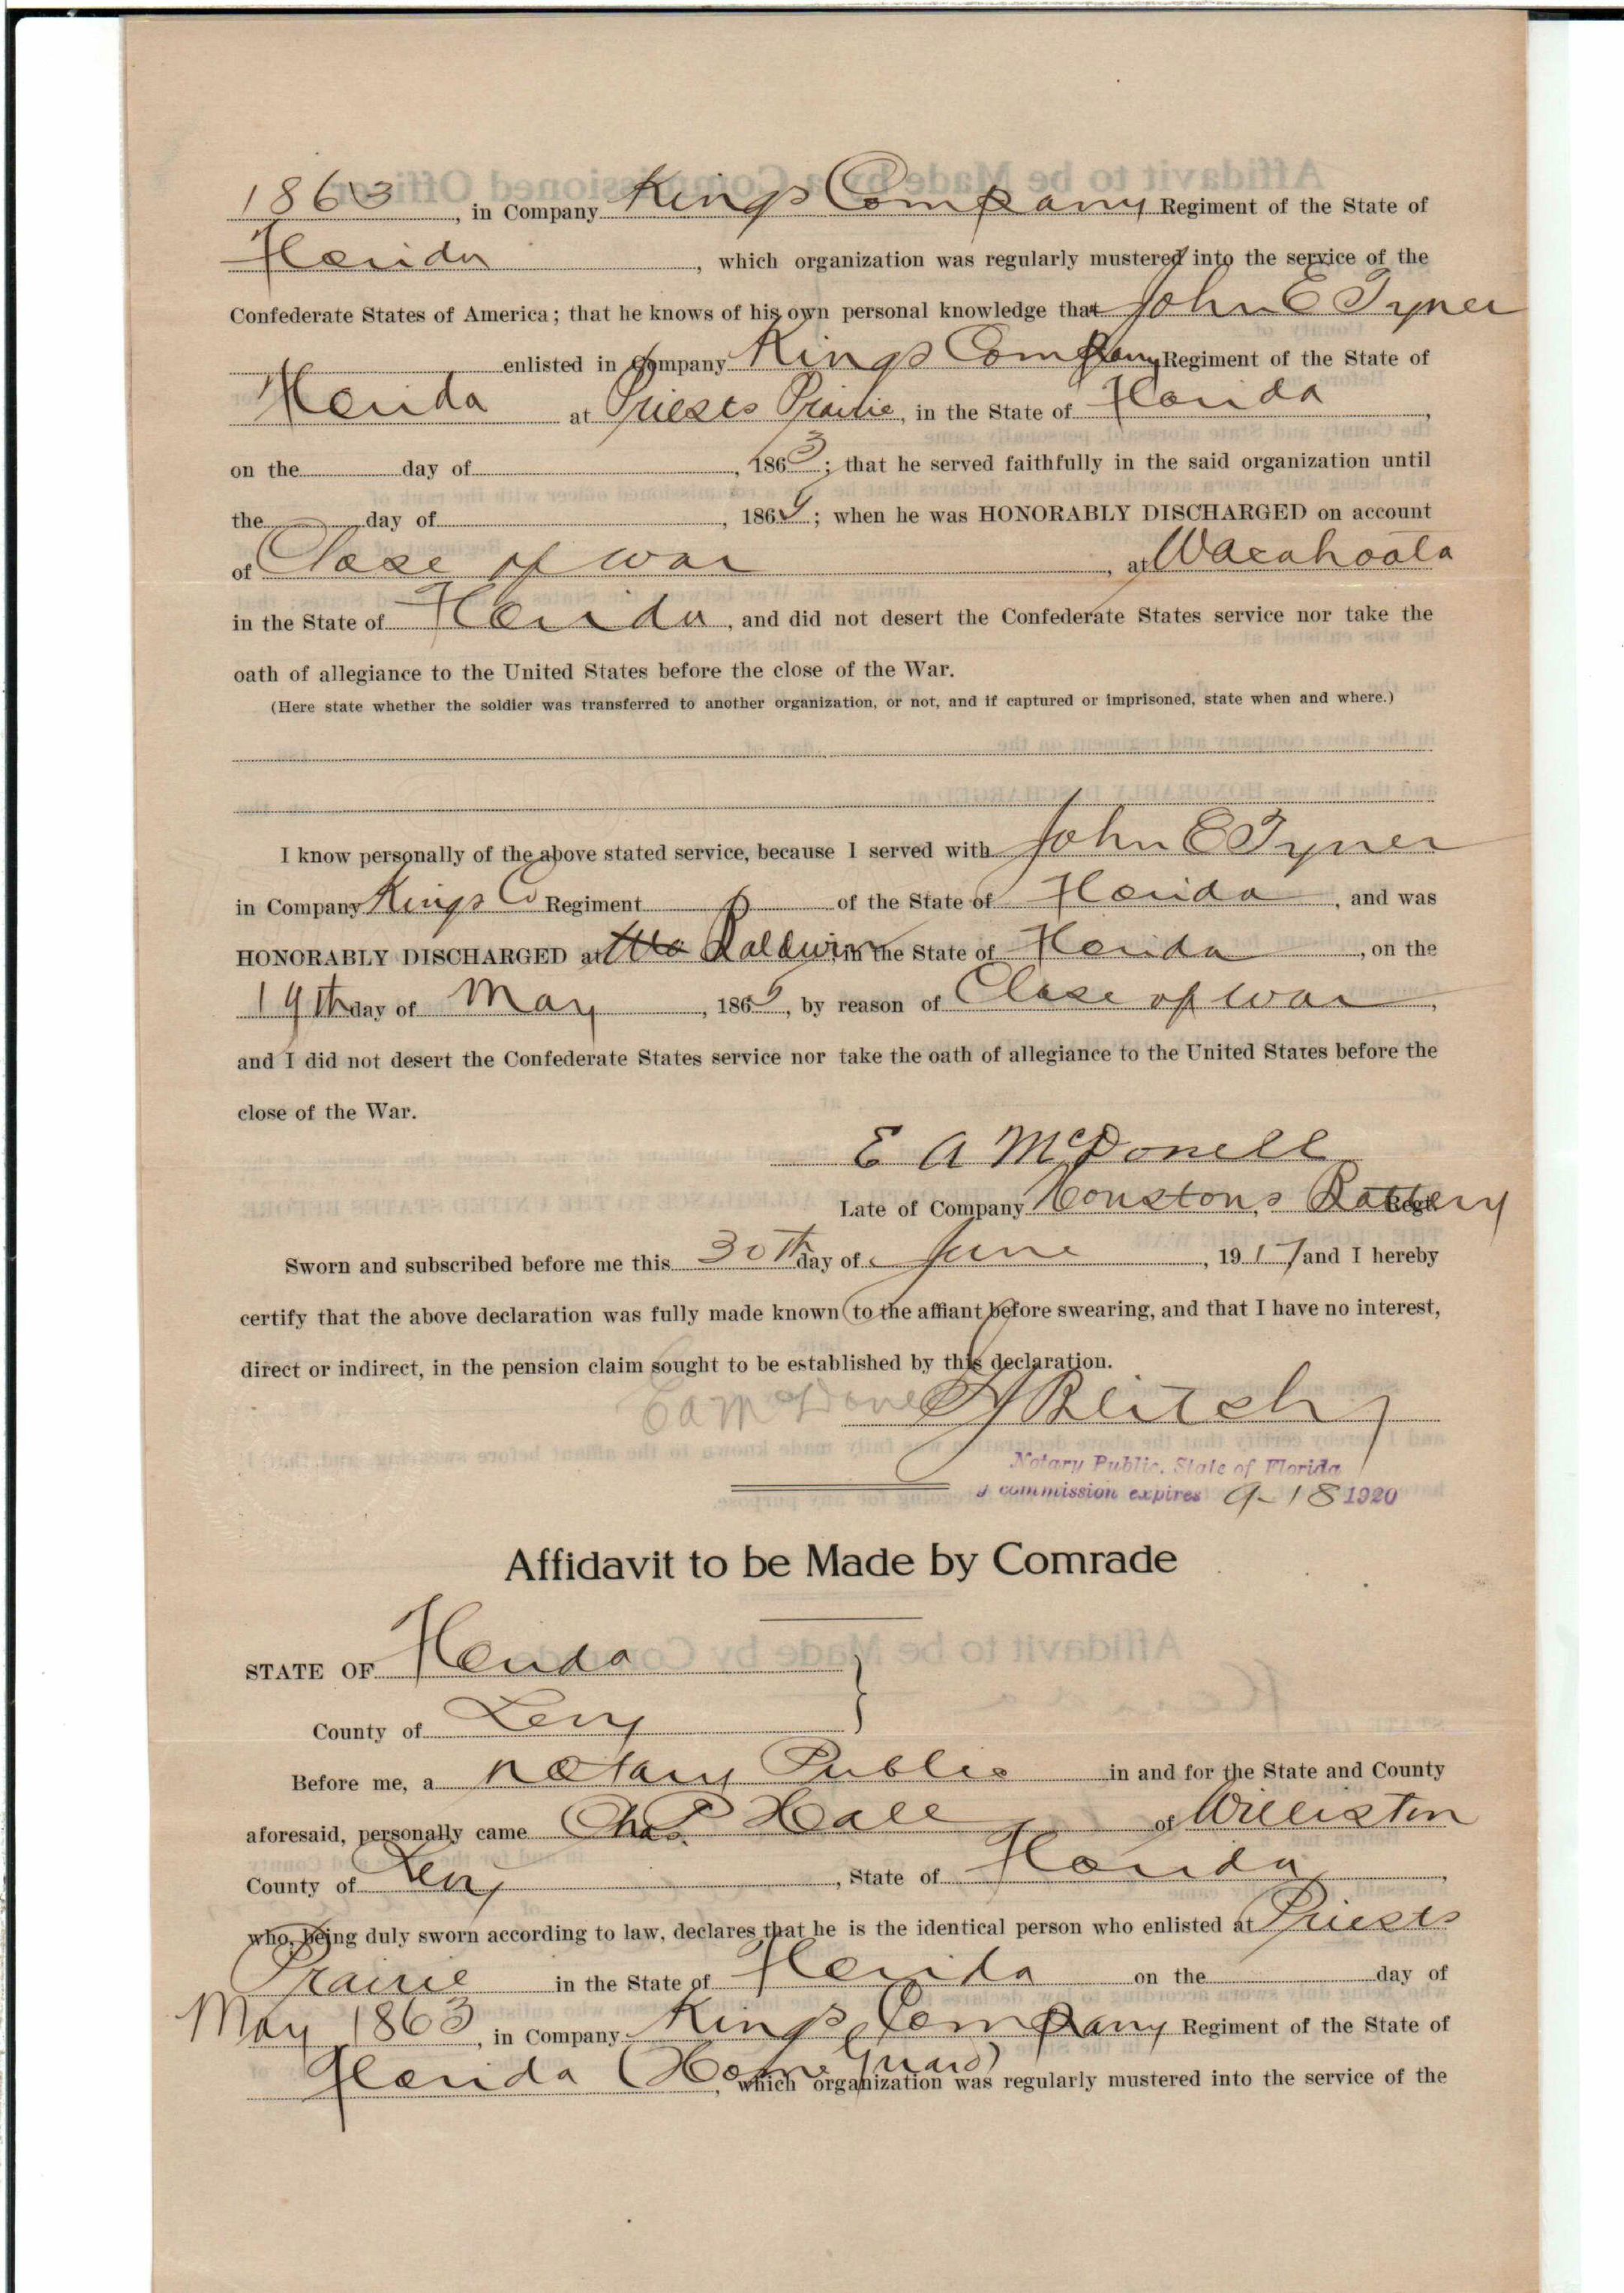 1863, in Company Kings Company Regiment of the State of
Florida, which organization was regularly mustered into the service of the
Confederate States of America; that he knows of his own personal knowledge that John E Tyner
enlisted in Company Kings Company Regiment of the State of
Florida at Priests Prairie, in the State of Florida,
on the day of , 1863; that he served faithfully in the said organization until
the day of , 1865; when he was HONORABLY DISCHARGED on account
of Close of war, at Wacahoota
in the State of Florida, and did not desert the Confederate States service nor take the
oath of allegiance to the United States before the close of the War.
(Here state whether the soldier was transferred to another organization, or not, and if captured or imprisoned, state when and where.)
I know personally of the above stated service, because I served with John E Tyner
in Company Kings Co Regiment of the State of Florida, and was
HONORABLY DISCHARGED at Baldwin in the State of Florida, on the
19th day of May, 1865, by reason of Close of war,
and I did not desert the Confederate States service nor take the oath of allegiance to the United States before the
close of the War.
E A McDonell
Late of Company Houstons Battery Regt.
Sworn and subscribed before me this 30th day of June, 1917 and I hereby
certify that the above declaration was fully made known to the affiant before swearing, and that I have no interest,
direct or indirect, in the pension claim sought to be established by this declaration.
Blitch
Notary Public, State of Florida
commission expires 9-18 1920
Affidavit to be Made by Comrade
STATE OF Florida
County of Levy
Before me, a Notary Public in and for the State and County
aforesaid, personally came Chas P Hall of Williston
County of Levy, State of Florida,
who, being duly sworn according to law, declares that he is the identical person who enlisted at Priests
Prairie in the State of Florida on the day of
May 1863, in Company Kings Company Regiment of the State of
Florida (Home Guard), which organization was regularly mustered into the service of the